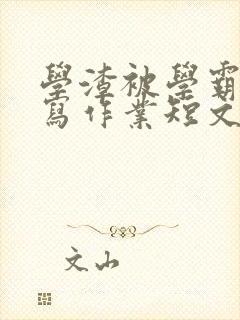 學渣被學霸
寫作業短文
文山